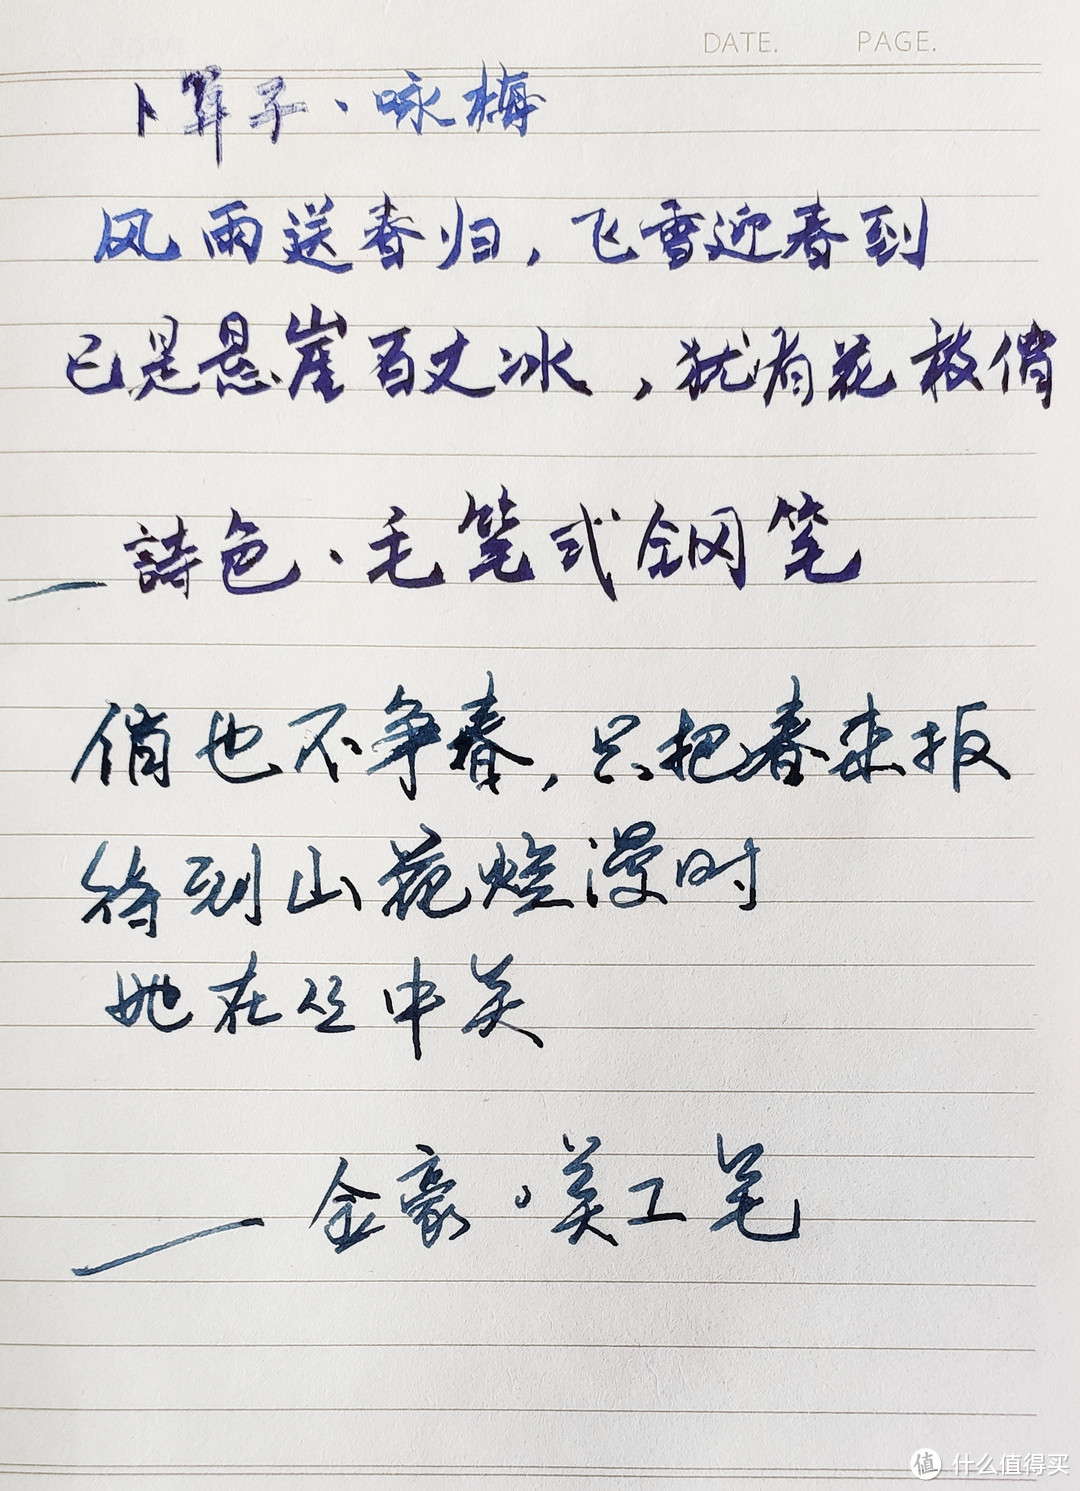 DATE. PAGE.
卜算子、咏梅
风雨送春归,飞雪迎春到
已是悬崖百丈冰,犹有花枝俏
—詩色·毛笔式钢笔
俏也不争春,只把春来报
待到山花烂漫时
她在丛中笑
—金豪·美工笔
值 什么值得买